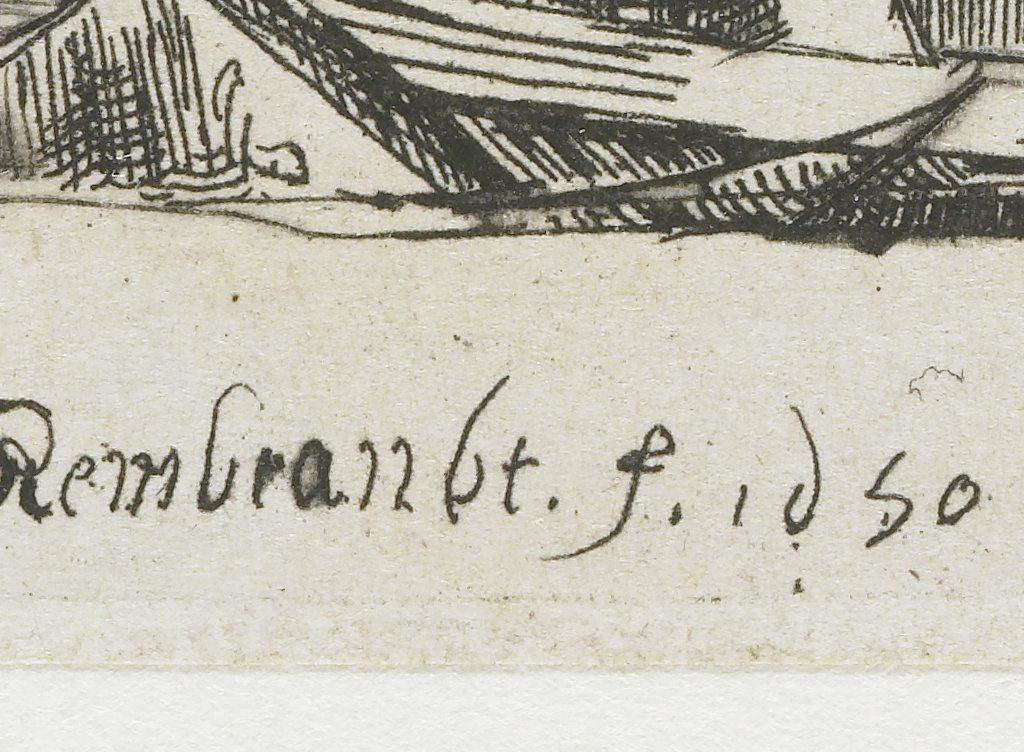 Rembrandt. f. 1650